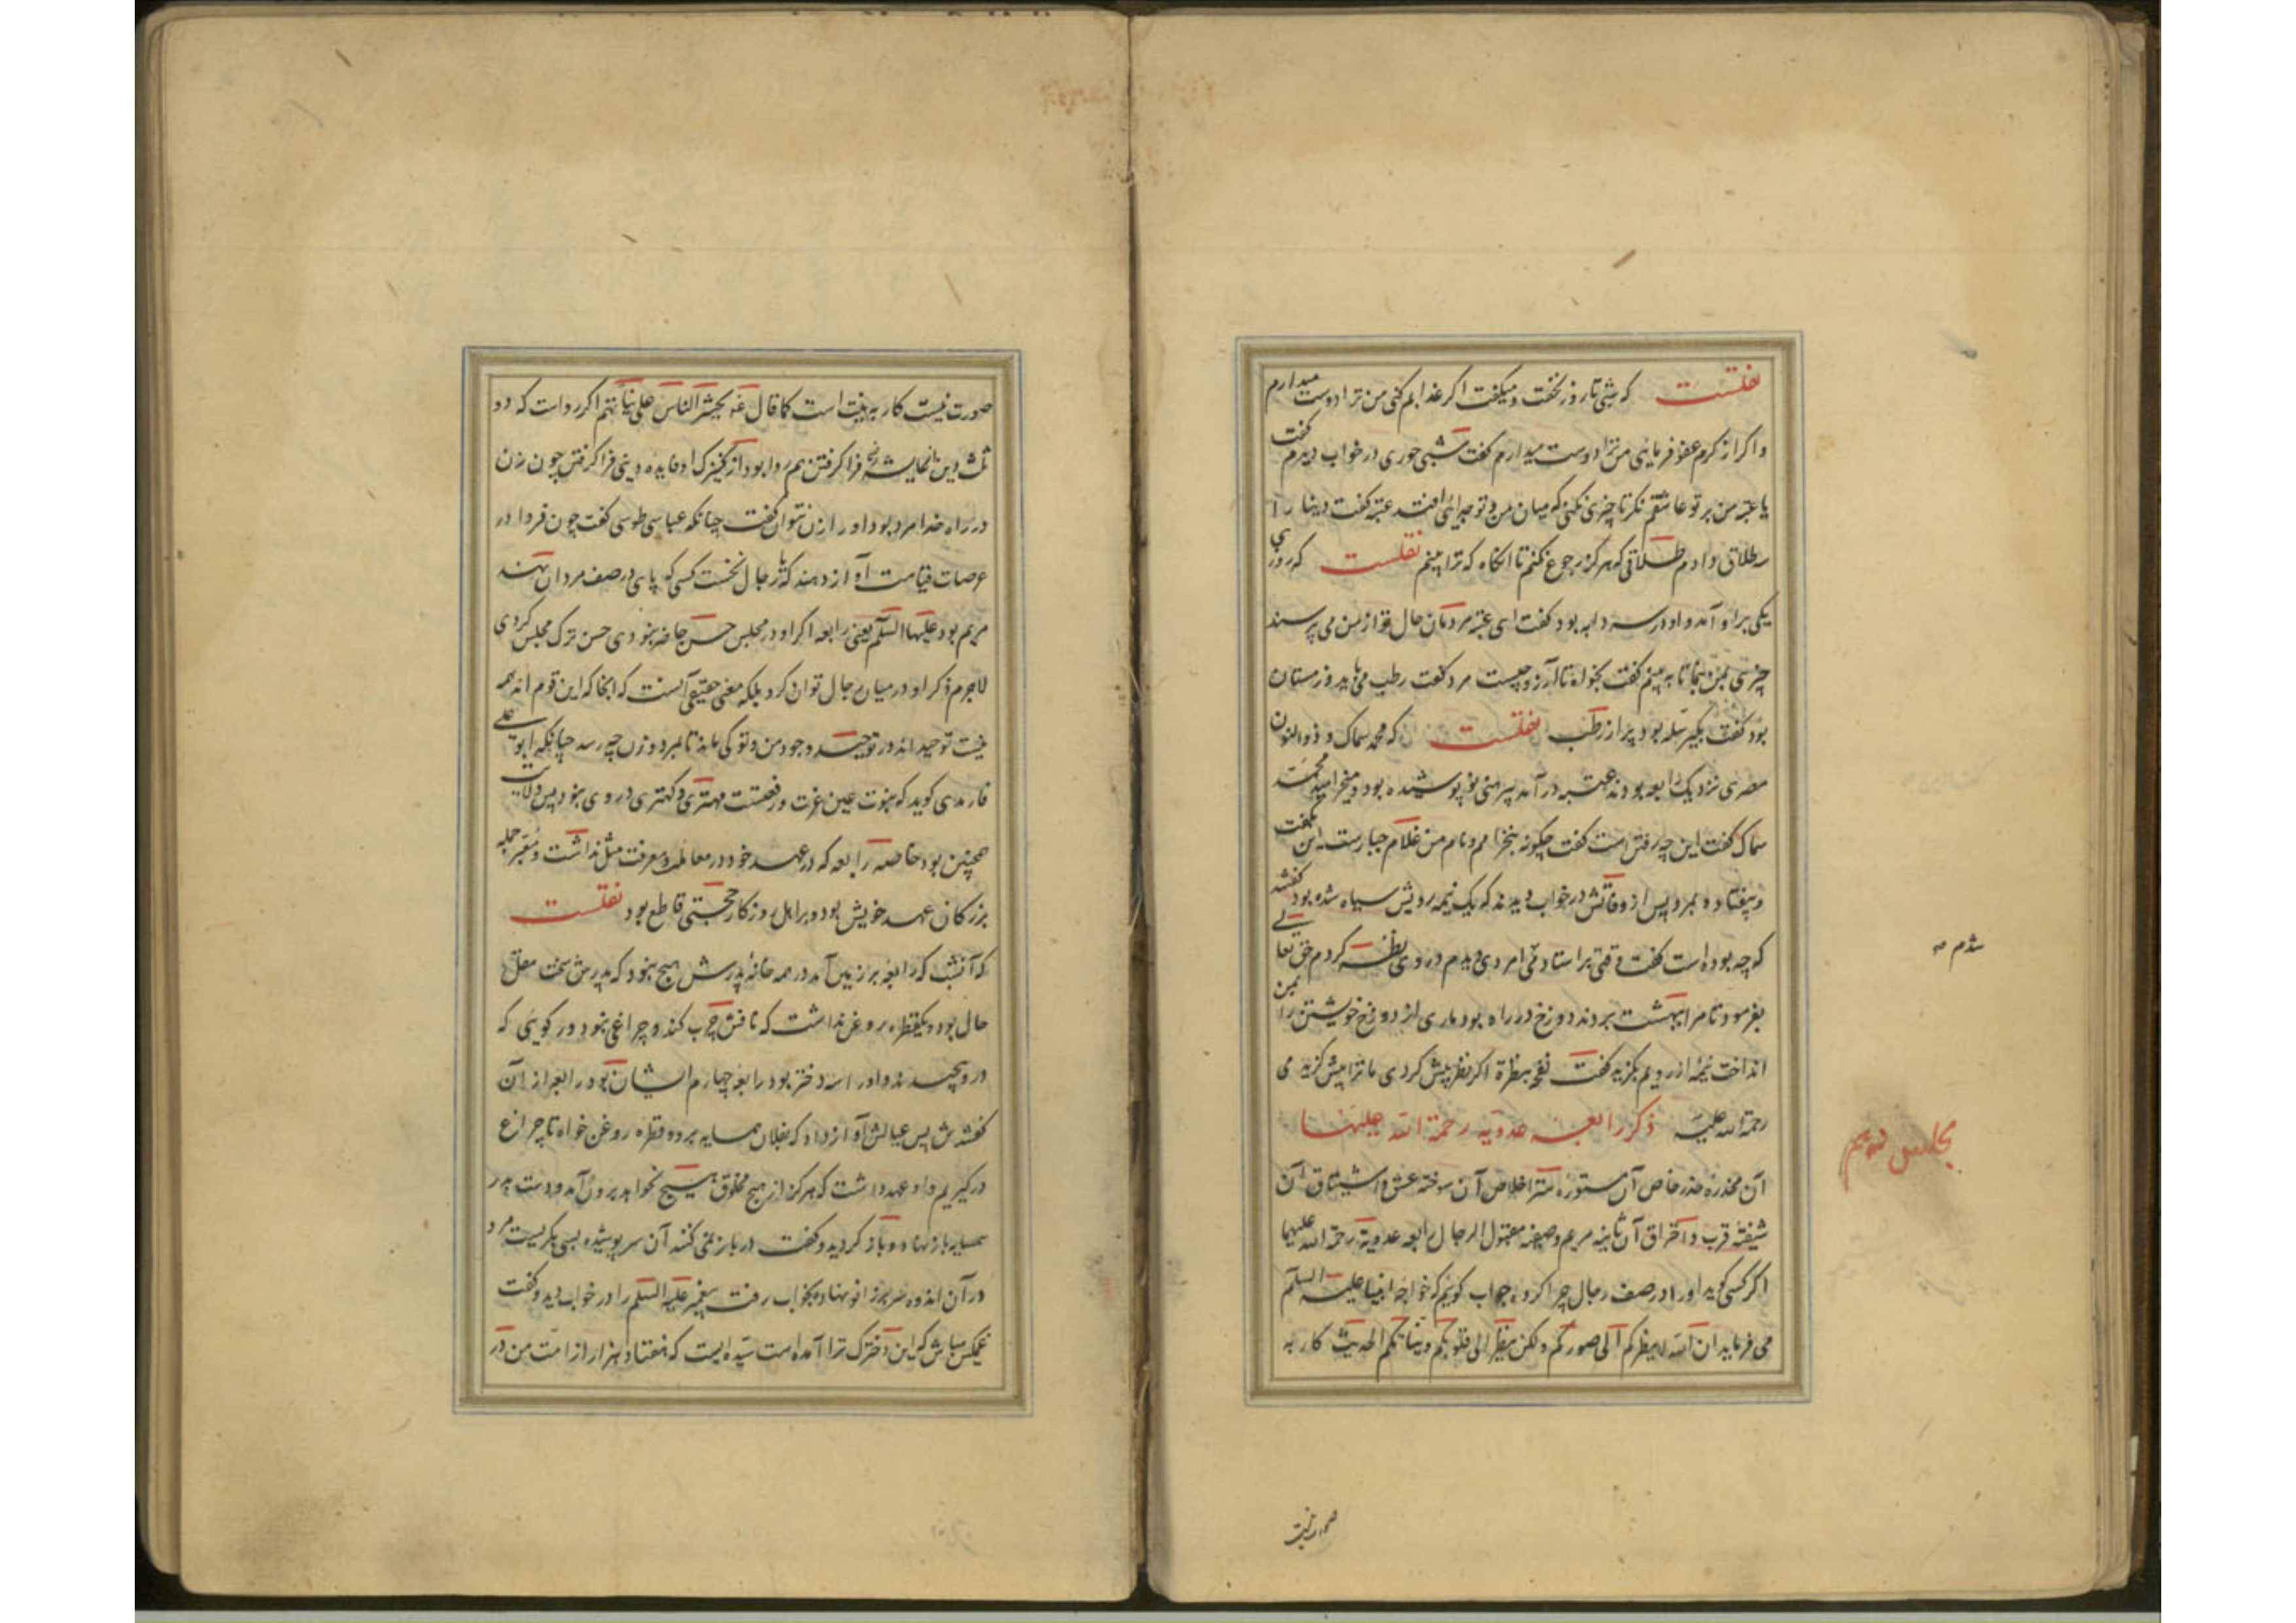 نقلست که شبی تا روز نخفت و میکفت اکر عذابم کنی من ترا دوست میدارم
و اکر از کرم عفو فرمایی من ترا دوست میدارم کفت شبی حوری در خواب دیدم کفت
یا عتبه من بر تو عاشقم نکر تا چیزی نکنی که میان من و تو جدائی افتد عتبه کفت دنیا را
طلاق دادم طلاقی که هرکز رجوع نکنم تا انکاه که ترا بینم نقلست که روزی
یکی بر او آمد و او در سردابه بود کفت ای عتبه مردمان حال تو از من می پرسند
چیزی بمن بنما تا به بینم کفت بخواه تا آرزو چیست مرد کفت رطب می باید و زمستان
بود کفت بکیر سله بود پر از رطب نقلست که محمد سماک و ذوالنون
مصری نزدیک رابعه بودند عتبه در آمد پیرهنی نو پوشیده بود و میخرامید محمد
سماک کفت این چه رفتن است کفت چکونه نخرامم و نام من غلام جبارست این بکفت
و بیفتاد و بمرد پس از وفاتش در خواب دیدند که یک نیمه رویش سیاه شده بود کفتند
که چه بوده است کفت وقتی بر استاد می امردی دیدم در وی نظر کردم حق تعالی
بفرمود تا مرا ببهشت بردند دوزخ در راه بود ماری از دوزخ خویشتن را بمن
انداخت نیمه از رویم بکزید کفت نفخة بنظرة اکر نظر بیش کردی ما ترا بیش کزیدمی
رحمة الله علیه ذکر رابعه عدویه رحمة الله علیها
آن مخدره خدر خاص آن مستوره ستر اخلاص آن سوخته عشق و اشتیاق آن
شیفته قرب و احتراق آن ثانیه مریم و صیفه مقبول الرجال رابعه عدویه رحمة الله علیها
اکر کسی کوید او را در صف رجال چرا کرده جواب کویم که خواجه انبیا علیه السلام
می فرماید ان الله لا ینظرکم الی صورکم ولکن ینظر الی قلوبکم و نیاتکم الحدیث کار به
شدم صه
مجلس سیم
صورت نیست
صورت نیست کار به نیت است کما قال یحشر الناس علی نیاتهم اکر رواست که دو
ثلث دین از عایشه فرا کرفتن هم روا بود از کنیزک او فایده دینی فرا کرفتن چون زن
در راه خدا مرد بود او را زن نتوان کفت چنانکه عباسی طوسی کفت چون فردا در
عرصات قیامت آواز دهند که یا رجال نخست کسی که پای در صف مردان نهند
مریم بود علیها السلم یعنی رابعه اکر او در مجلس حسن حاضر نبودی حسن ترک مجلس کردی
لاجرم ذکر او در میان رجال توان کرد بلکه معنی حقیقی آنست که انجا که این قوم اند همه
نیست توحید اند در توحید وجود من و تو کی ماند تا بمرد و زن چه رسد چنانکه ابو علی
فارمدی کوید که نبوت عین عزت و رفعتست مهتری و کهتری در وی نبود پس ولایت
همچنین بود خاصه رابعه که در عهد خود در معاملت و معرفت مثل نداشت و معتبر جمله
بزرکان عهد خویش بود و بر اهل روزکار حجتی قاطع بود نقلست
که آنشب که رابعه بر زمین آمد در همه خانه پدرش هیچ نبود که پدرش سخت مقل
حال بود و یکقطره روغن نداشت که نافش چرب کند و چراغی نبود و رکوئی که
در و پیچیدند و او را سه دختر بود رابعه چهارم ایشان بود رابعه از آن
کفتندش پس عیالش آواز داد که بفلان همسایه برو و قطره روغن خواه تا چراغ
درکیریم و او عهد داشت که هرکز از هیچ مخلوق هیچ نخواهد برون آمد و دست بدر
همسایه باز نهاد و باز کردید و کفت در باز نمی کنند آن سر پوشیده بسی بکریست مرد
در آن اندوه سر بر زانو نهاد و بخواب رفت پیغمبر علیه السلم را در خواب دید و کفت
غمکین مباش که این دخترک ترا آمده است سیده ایست که هفتاد هزار از امت من در